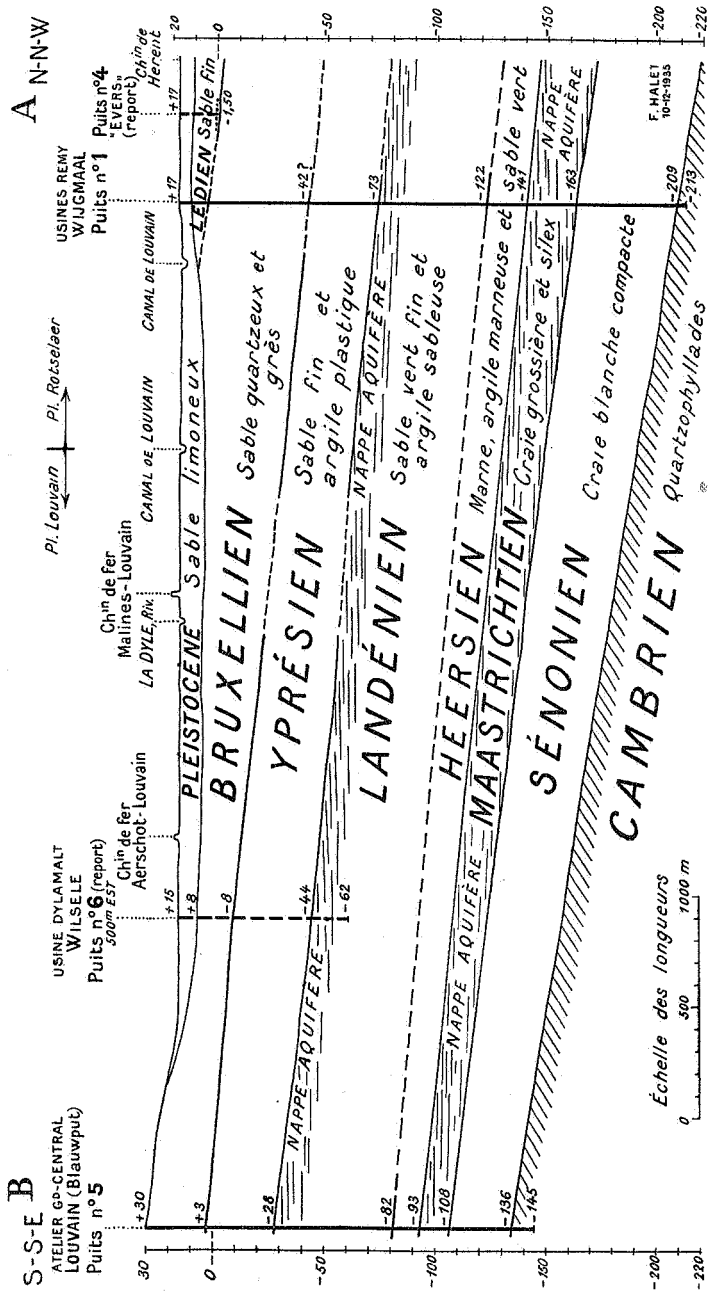 S-S-E B
ATELIER GD-CENTRAL
LOUVAIN (Blauwput)
Puits n° 5
USINE DYLAMALT
WILSELE
Puits n° 6 (report)
500m EST
Chin de fer
Aerschot-Louvain
Chin de fer
Malines-Louvain
LA DYLE, Riv.
Pl. Louvain
Pl. Rotselaer
CANAL DE LOUVAIN
CANAL DE LOUVAIN
USINES REMY
WIJGMAAL
Puits n° 1
A N-N-W
Puits n° 4
"EVERS"
(report)
Chin de
Herent
30
0
-50
-100
-150
-200
20
0
-50
-100
-150
-200
-220
+30
+3
-28
-82
-93
-108
-136
-145
+15
+8
-8
-44
-62
+17
-42?
-73
-122
-141
-163
-209
-213
+17
-1,50
PLEISTOCENE Sable limoneux
LEDIEN Sable fin
BRUXELLIEN Sable quartzeux et
grès
YPRÉSIEN Sable fin et
argile plastique
NAPPE AQUIFÈRE
NAPPE AQUIFÈRE
LANDÉNIEN Sable vert fin et
argile sableuse
HEERSIEN Marne, argile marneuse et sable vert
NAPPE AQUIFÈRE
MAASTRICHTIEN Craie grossière et silex
NAPPE
AQUIFÈRE
SÉNONIEN Craie blanche compacte
CAMBRIEN Quartzophyllades
Échelle des longueurs
0 500 1000 m
F. HALET
10-12-1935